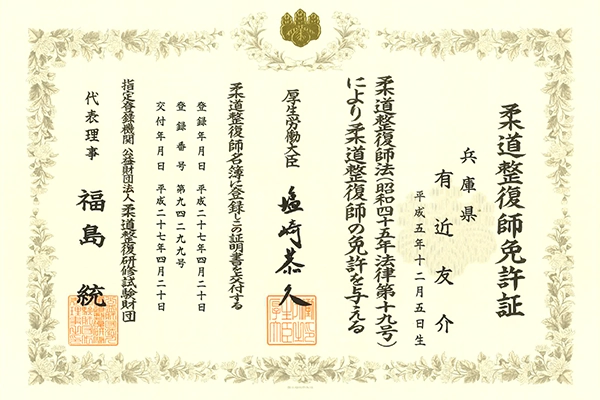 柔道整復師免許証
兵庫県
有近友介
平成五年十二月五日生
柔道整復師法(昭和四十五年法律第十九号)
により柔道整復師の免許を与える
厚生労働大臣 塩崎恭久
柔道整復師名簿に登録しこの証明書を交付する
登録年月日 平成二十七年四月二十日
登録番号 第九四二九九号
交付年月日 平成二十七年四月二十日
指定登録機関 公益財団法人柔道整復研修試験財団
代表理事 福島統